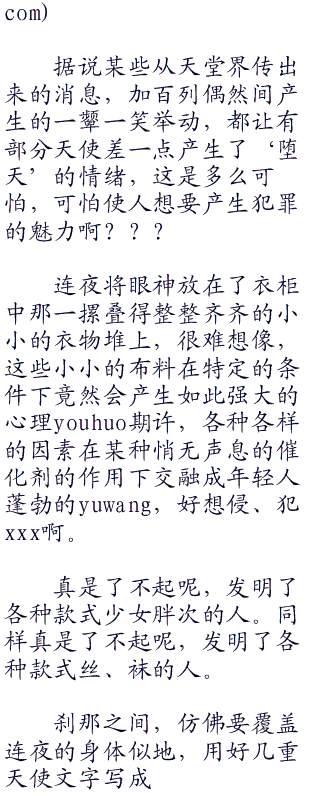 com)
据说某些从天堂界传出
来的消息，加百列偶然间产
生的一颦一笑举动，都让有
部分天使差一点产生了‘堕
天’的情绪，这是多么可
怕，可怕使人想要产生犯罪
的魅力啊？？？
连夜将眼神放在了衣柜
中那一摞叠得整整齐齐的小
小的衣物堆上，很难想像，
这些小小的布料在特定的条
件下竟然会产生如此强大的
心理youhuo期许，各种各样
的因素在某种悄无声息的催
化剂的作用下交融成年轻人
蓬勃的yuwang，好想侵、犯
xxx啊。
真是了不起呢，发明了
各种款式少女胖次的人。同
样真是了不起呢，发明了各
种款式丝、袜的人。
刹那之间，仿佛要覆盖
连夜的身体似地，用好几重
天使文字写成